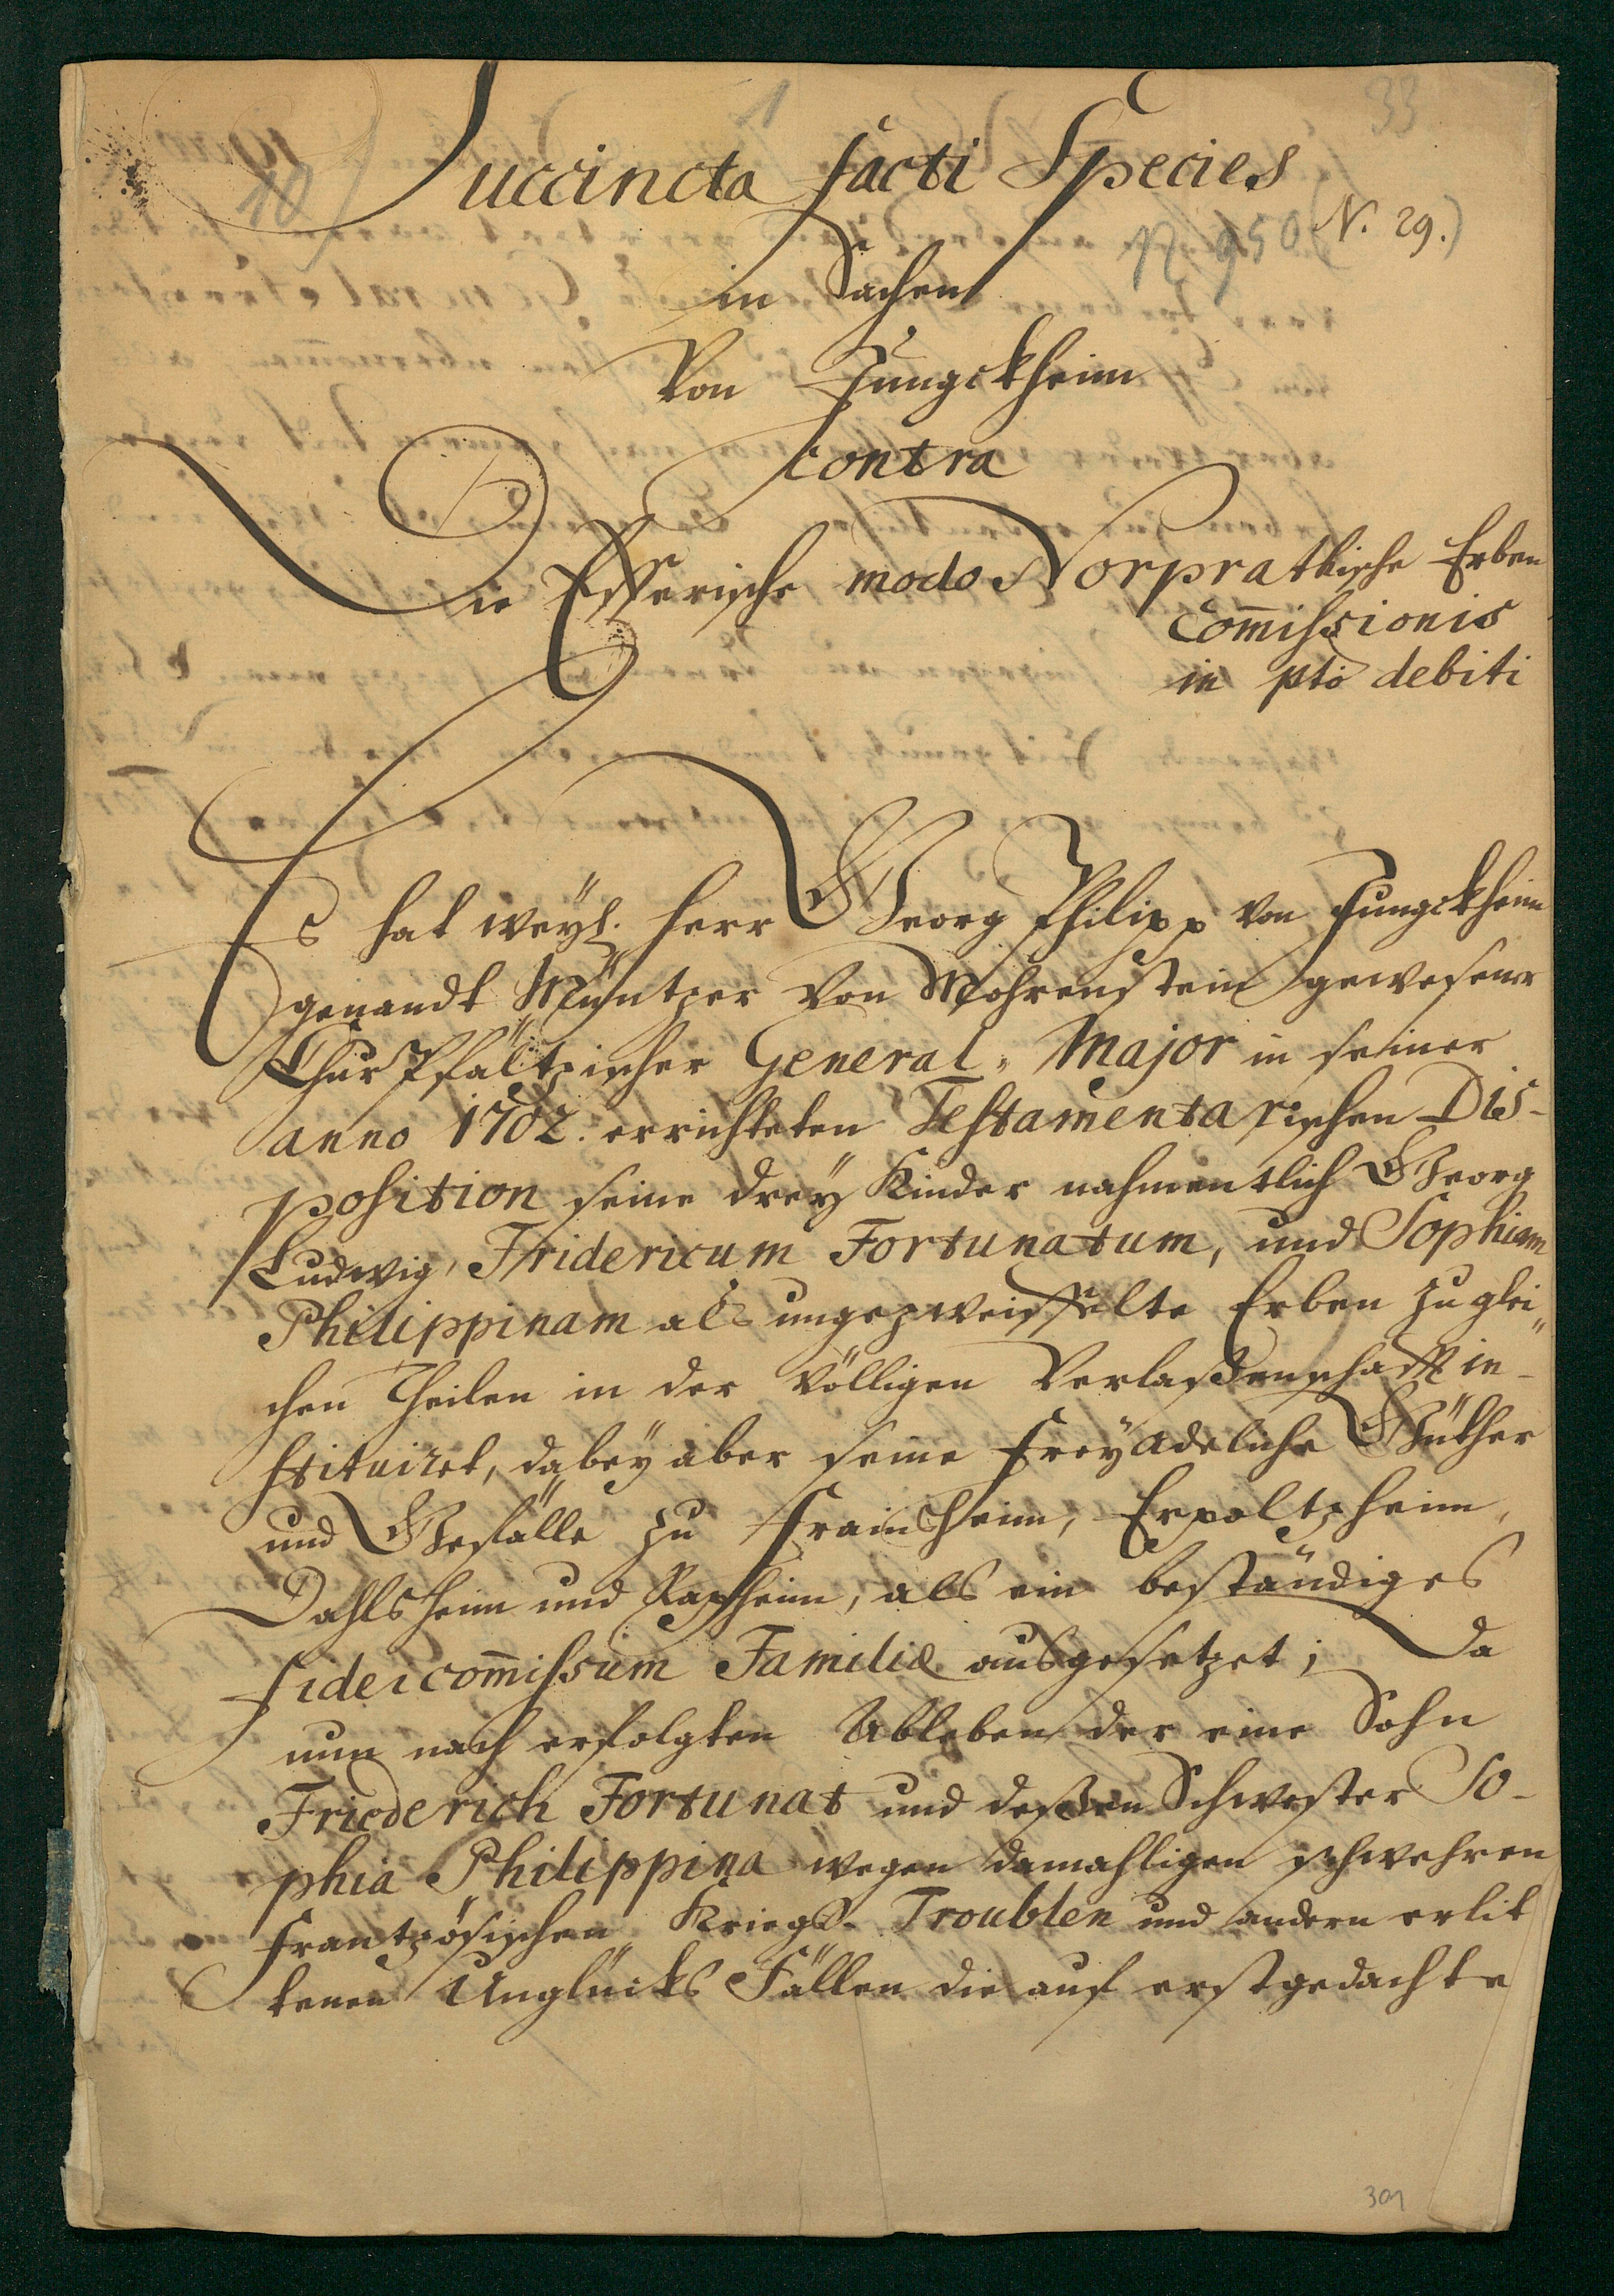 33
Succincta facti Species
10
N. 29.)
12950
in Sachen
Von Jungckheim
contra
Die Esserische modo Norprathische Erben
Com̄issionis
in pto debiti
Es hat weyl. Herr Georg Philipp von Jungckheim
genandt Müntzer von Mohrenstein gewesener
ChurPfältzischer General-Major in seiner
anno 1702. errichteten Testamentarischen Dis-
position seine drey Kinder nahmentlich Georg
Ludwig, Fridericum Fortunatum, und Sophiam
Philippinam als ungezweiffelte Erben zu glei"
chen Theilen in der völligen Verlaßenschafft in-
stituiret, dabey aber seine freyadeliche Güther
und Gefälle zu Frainsheim, Erpoltzheim,
Dahlsheim und Kapsheim, als ein beständiges
fideicom̄issum Familiæ ausgesetzet; Da
nun nach erfolgten Ableben der eine Sohn
Friederich Fortunat und deßen Schwester So-
phia Philippina wegen damahligen schwehren
frantzösischen Kriegs-Troublen und andern erlit
tenen Unglücks Fällen die auf erstgedachte
301